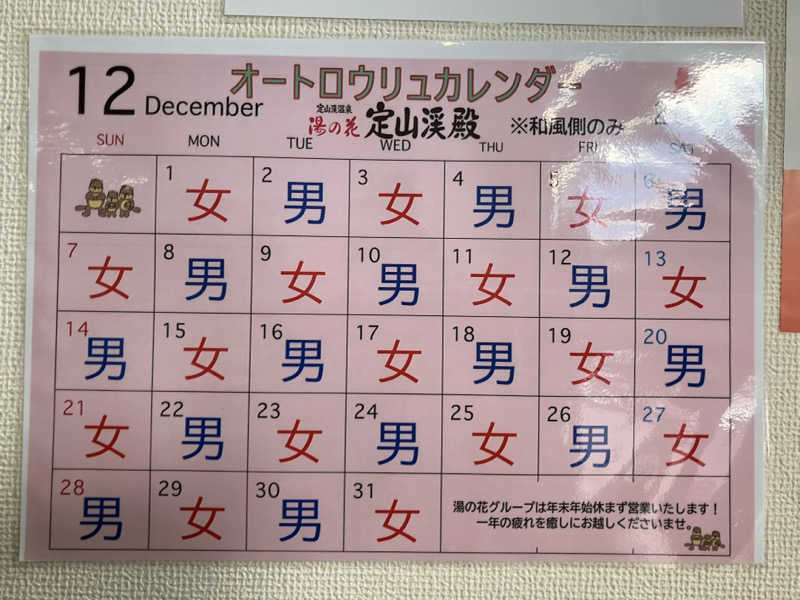 12 December
オートロウリュカレンダー
定山渓温泉
湯の花 定山渓殿 ※和風側のみ
SUN MON TUE WED THU FRI SAT
1 女 2 男 3 女 4 男 5 女 6 男
7 女 8 男 9 女 10 男 11 女 12 男 13 女
14 男 15 女 16 男 17 女 18 男 19 女 20 男
21 女 22 男 23 女 24 男 25 女 26 男 27 女
28 男 29 女 30 男 31 女
湯の花グループは年末年始休まず営業いたします！
一年の疲れを癒しにお越しくださいませ。